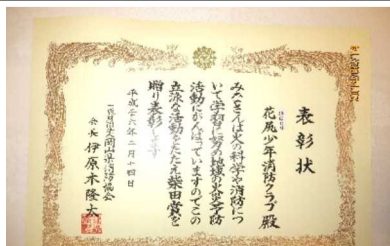 表彰状
花尻少年消防クラブ 殿
みなさんは火の科学や消防につ
いて学習に努め地域の火災予防
活動にがんばっていますのでこの
立派な活動をたたえ柴田賞を
贈り表彰します
平成二十六年二月十四日
一般財団法人岡山県消防協会
会長 伊原木隆太